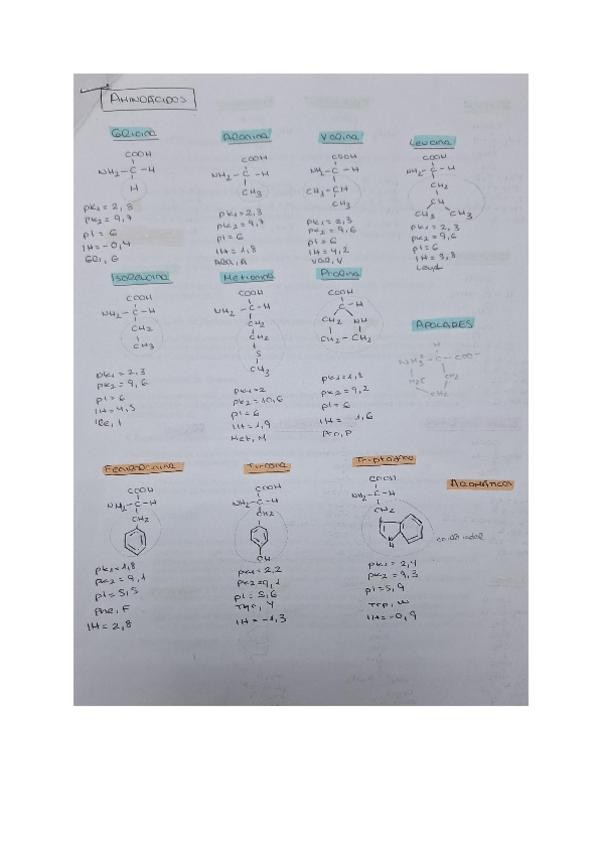 AMINOÁCIDOS
Glicina
COOH
NH₂-C-H
H
pK₁=2,8
pK₂=9,7
pI=6
IH=-0,4
Gli, G
Alanina
COOH
NH₂-C-H
CH₃
pK₁=2,3
pK₂=9,7
pI=6
IH=1,8
Ala, A
Valina
COOH
NH₂-C-H
CH₃-CH
CH₃
pK₁=2,3
pK₂=9,6
pI=6
IH=4,2
Val, V
Leucina
COOH
NH₂-C-H
CH₂
CH
CH₃ CH₃
pK₁=2,3
pK₂=9,6
pI=6
IH=3,8
Isoleucina
COOH
NH₂-C-H
CH₂
CH₃
pK₁=2,3
pK₂=9,6
pI=6
IH=4,5
Ile, I
Metionina
COOH
NH₂-C-H
CH₂
CH₂
S
CH₃
pK₁=2
pK₂=10,6
pI=6
IH=1,9
Met, M
Prolina
COOH
C-H
CH₂ NH
CH₂-CH₂
pK₁=1,8
pK₂=9,2
pI=6
IH= 1,6
Pro, P
APOLARES
H
NH₂-C-COO⁻
H₂C CH₂
CH₂
Fenilalanina
COOH
NH₂-C-H
CH₂
pK₁=1,8
pK₂=9,1
pI=5,5
Phe, F
IH=2,8
Tirosina
COOH
NH₂-C-H
CH₂
OH
pK₁=2,2
pK₂=9,1
pI=5,6
Tyr, Y
IH=-1,3
Triptófano
COOH
NH₂-C-H
CH₂
N
H
pK₁=2,4
pK₂=9,3
pI=5,9
Trp, W
IH=-0,9
AROMÁTICOS